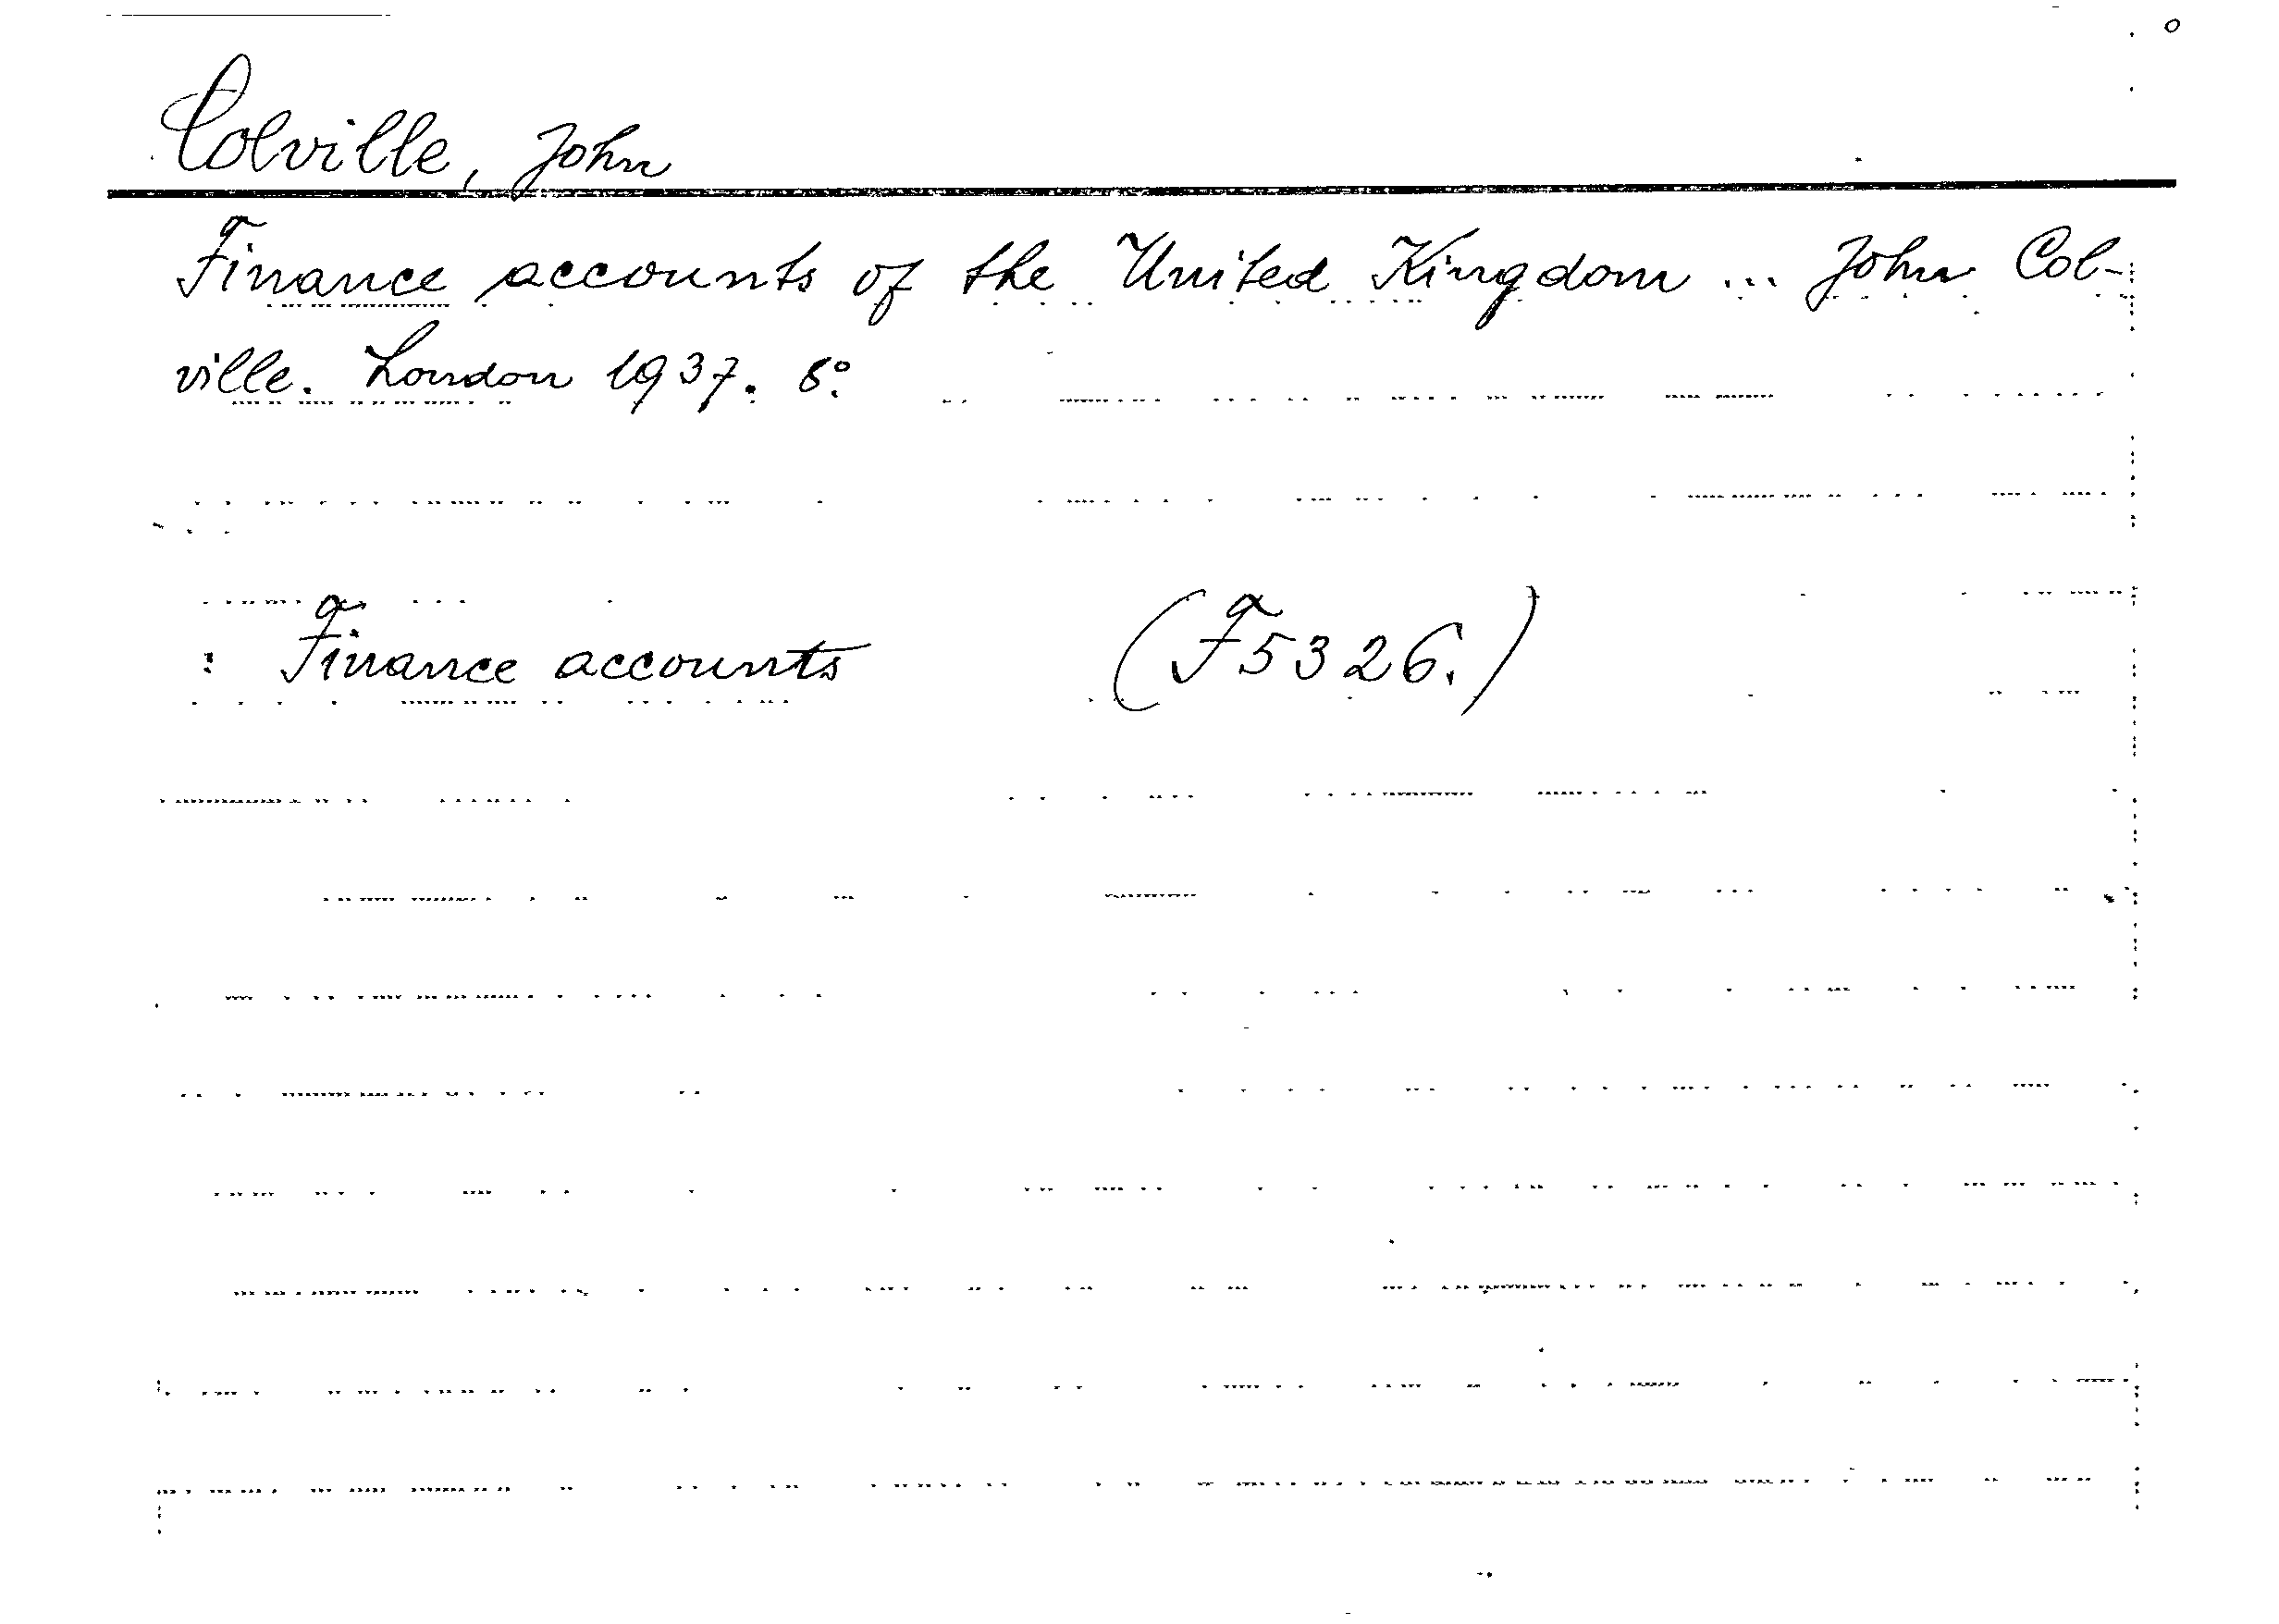 Colville, John
Finance accounts of the United Kingdom ... John Col-
ville. London 1937. 8:o
: Finance accounts (F5326.)